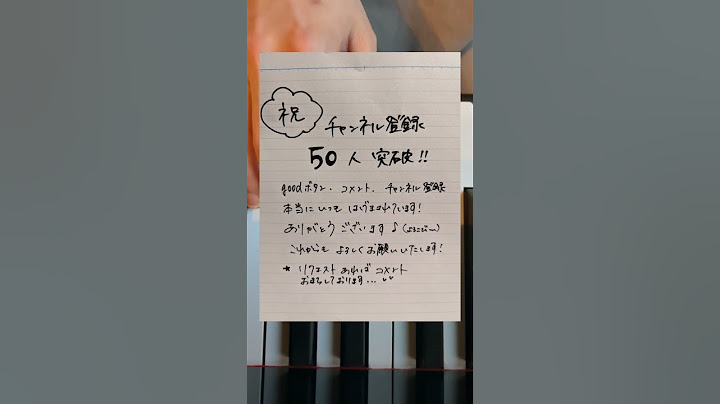 祝
チャンネル登録
50人 突破!!
goodボタン、コメント、チャンネル登録
本当にいつも はげまされています!
ありがとうございます♪
これからも よろしくお願いいたします!
★リクエストあれば コメント
おまちしております...